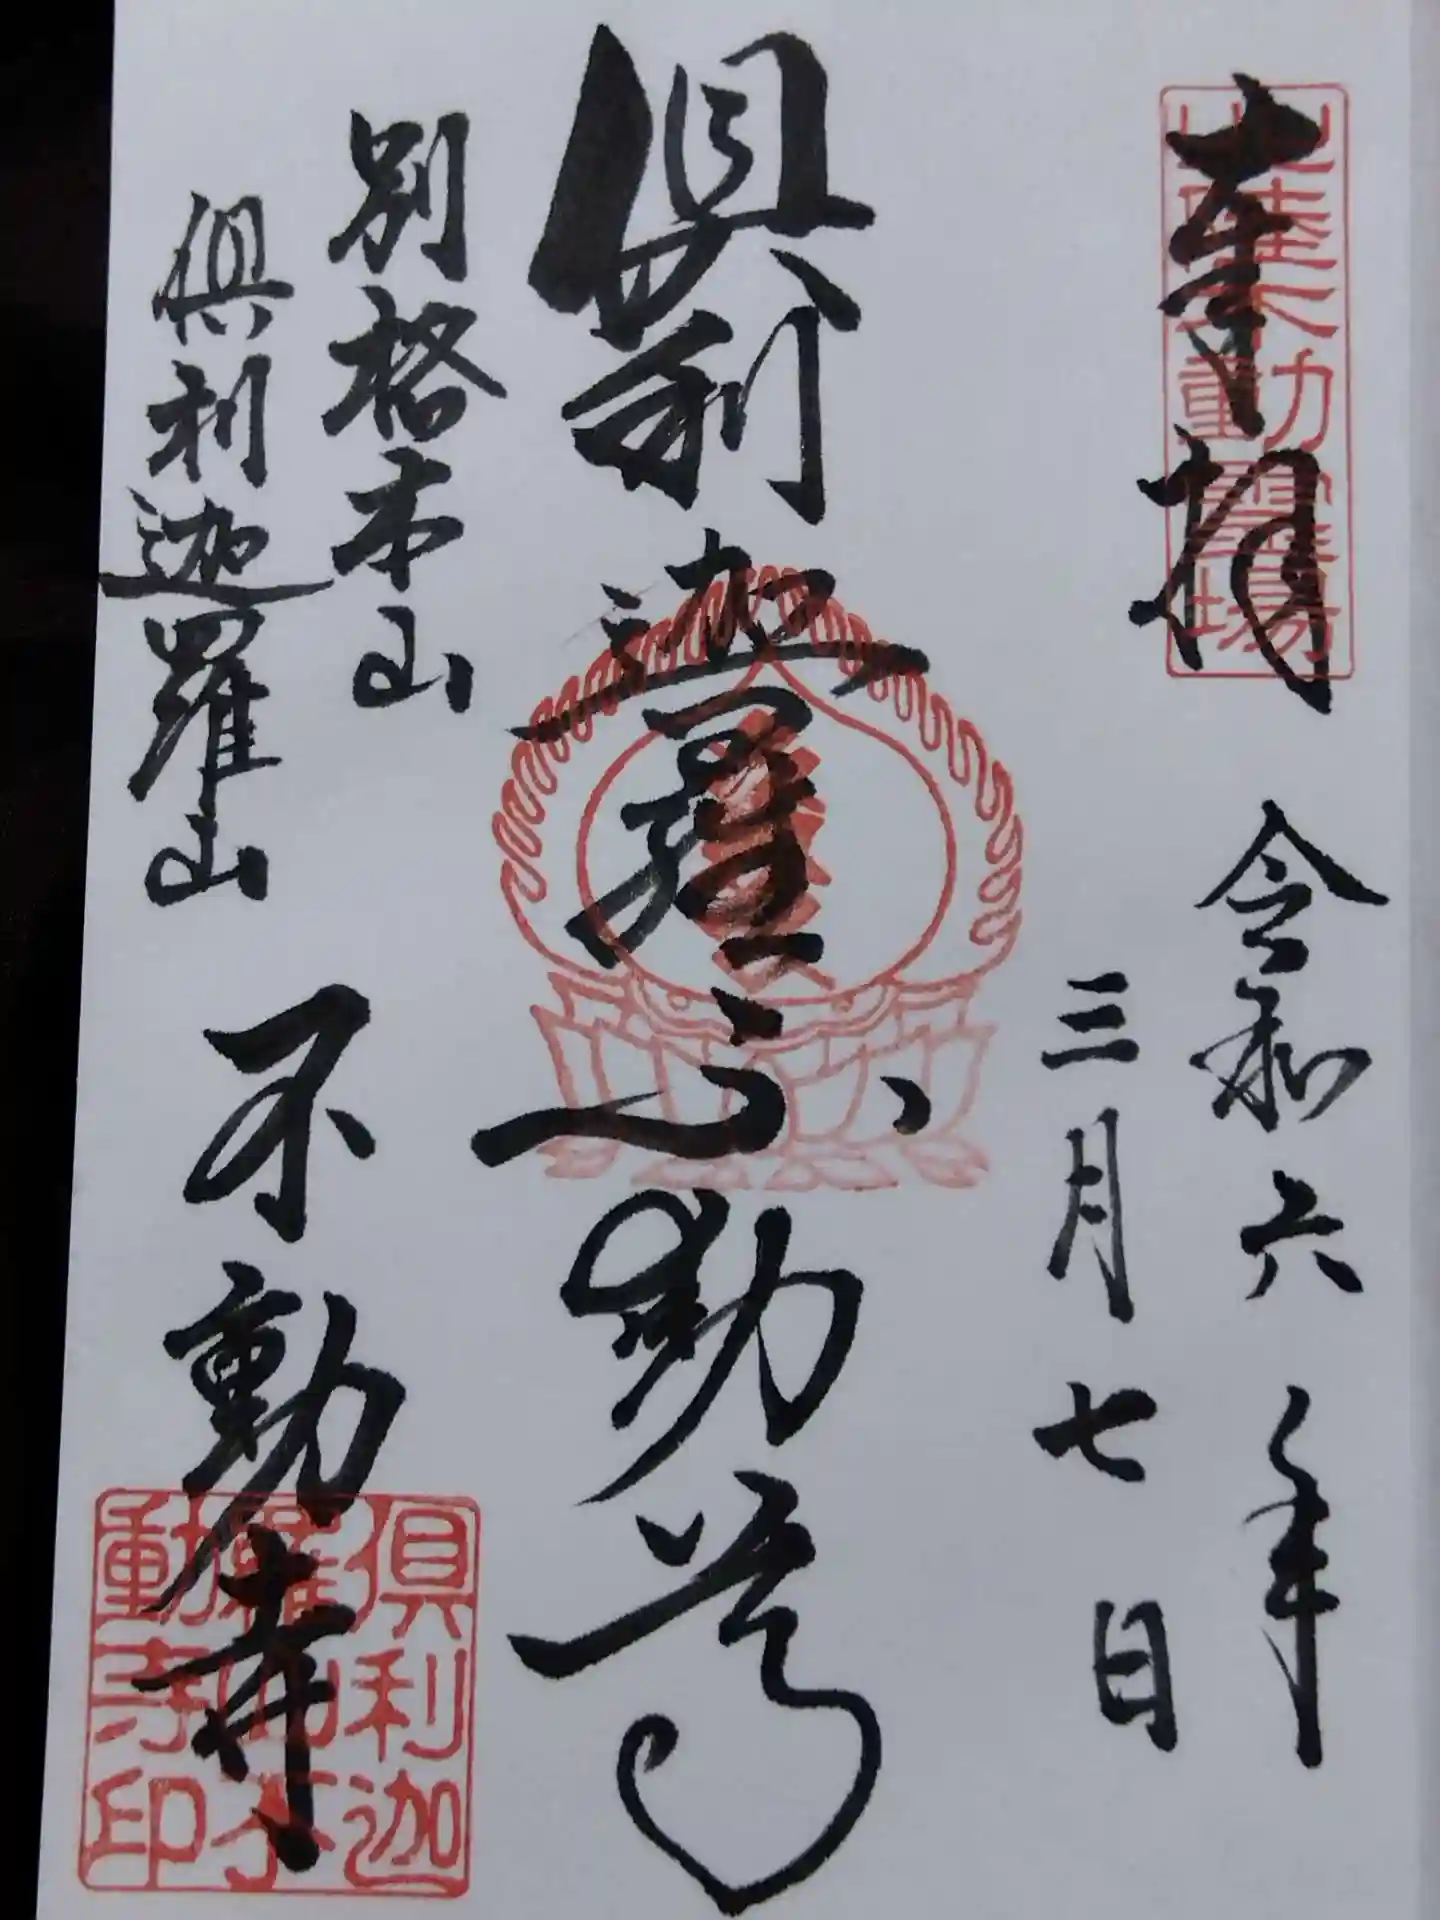 奉拝
北陸不動霊場
令和六年
三月七日
倶利迦羅不動尊
別格本山
倶利迦羅山
不動寺
倶利迦
羅山不
動寺印